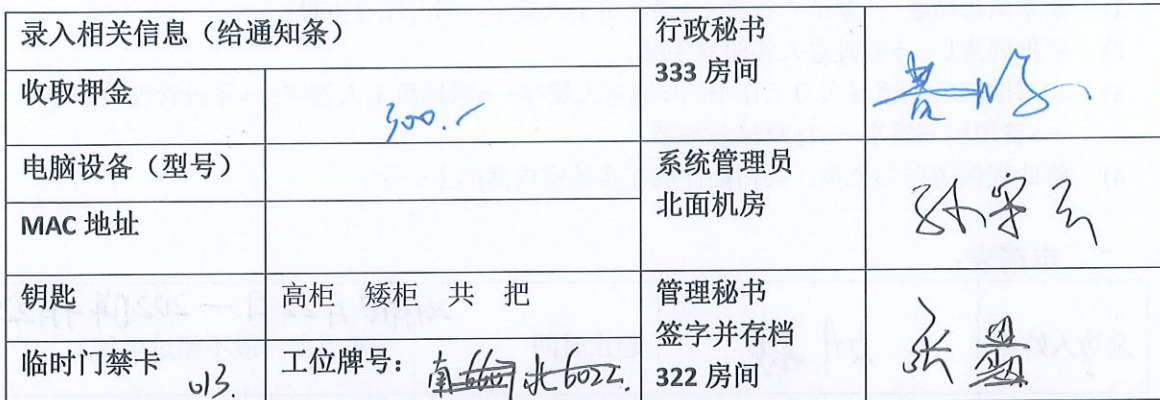 录入相关信息（给通知条）
行政秘书
333 房间
收取押金
300.-
电脑设备（型号）
系统管理员
北面机房
MAC 地址
钥匙
高柜 矮柜 共 把
管理秘书
签字并存档
322 房间
临时门禁卡 013.
工位牌号： 北6022.
张